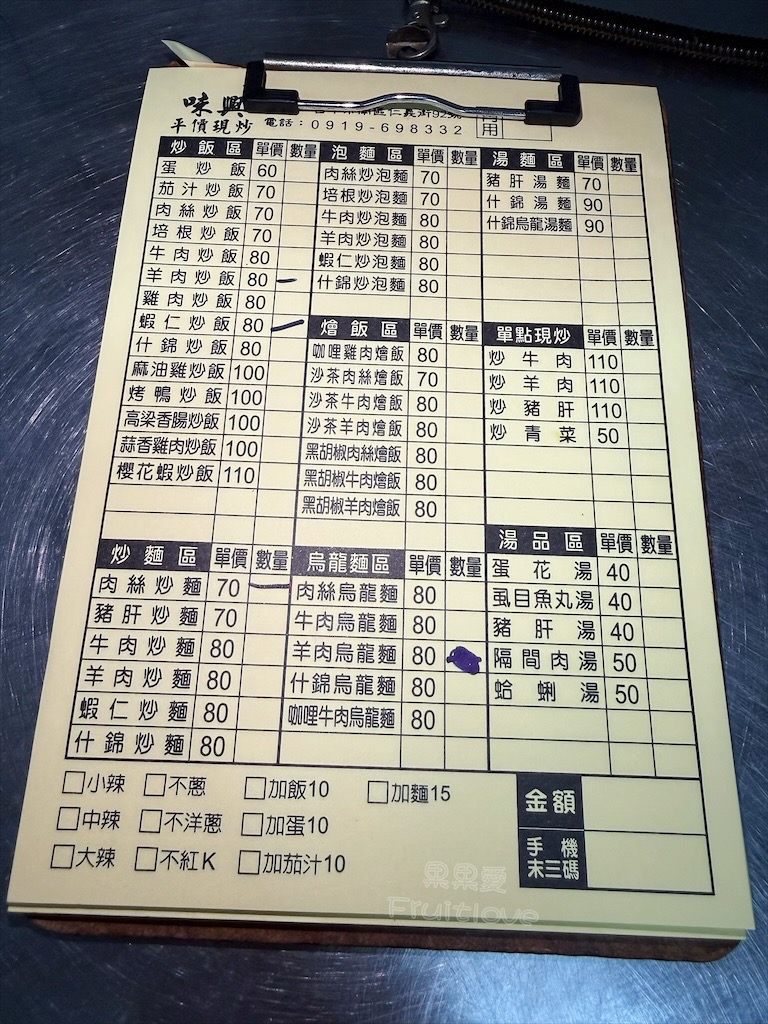 味興
平價現炒
仁義街92號
電話：0919-698332
用
炒飯區 單價 數量
蛋炒飯 60
茄汁炒飯 70
肉絲炒飯 70
培根炒飯 70
牛肉炒飯 80
羊肉炒飯 80
雞肉炒飯 80
蝦仁炒飯 80
什錦炒飯 80
麻油雞炒飯 100
烤鴨炒飯 100
高梁香腸炒飯 100
蒜香雞肉炒飯 100
櫻花蝦炒飯 110
泡麵區 單價 數量
肉絲炒泡麵 70
培根炒泡麵 70
牛肉炒泡麵 80
羊肉炒泡麵 80
蝦仁炒泡麵 80
什錦炒泡麵 80
湯麵區 單價 數量
豬肝湯麵 70
什錦湯麵 90
什錦烏龍湯麵 90
燴飯區 單價 數量
咖哩雞肉燴飯 80
沙茶肉絲燴飯 70
沙茶牛肉燴飯 80
沙茶羊肉燴飯 80
黑胡椒肉絲燴飯 80
黑胡椒牛肉燴飯 80
黑胡椒羊肉燴飯 80
單點現炒 單價 數量
炒牛肉 110
炒羊肉 110
炒豬肝 110
炒青菜 50
炒麵區 單價 數量
肉絲炒麵 70
豬肝炒麵 70
牛肉炒麵 80
羊肉炒麵 80
蝦仁炒麵 80
什錦炒麵 80
烏龍麵區 單價 數量
肉絲烏龍麵 80
牛肉烏龍麵 80
羊肉烏龍麵 80
什錦烏龍麵 80
咖哩牛肉烏龍麵 80
湯品區 單價 數量
蛋花湯 40
虱目魚丸湯 40
豬肝湯 40
隔間肉湯 50
蛤蜊湯 50
□小辣 □不蔥 □加飯10 □加麵15
□中辣 □不洋蔥 □加蛋10
□大辣 □不紅K □加茄汁10
金額
手機
末三碼
果果愛
Fruitlove